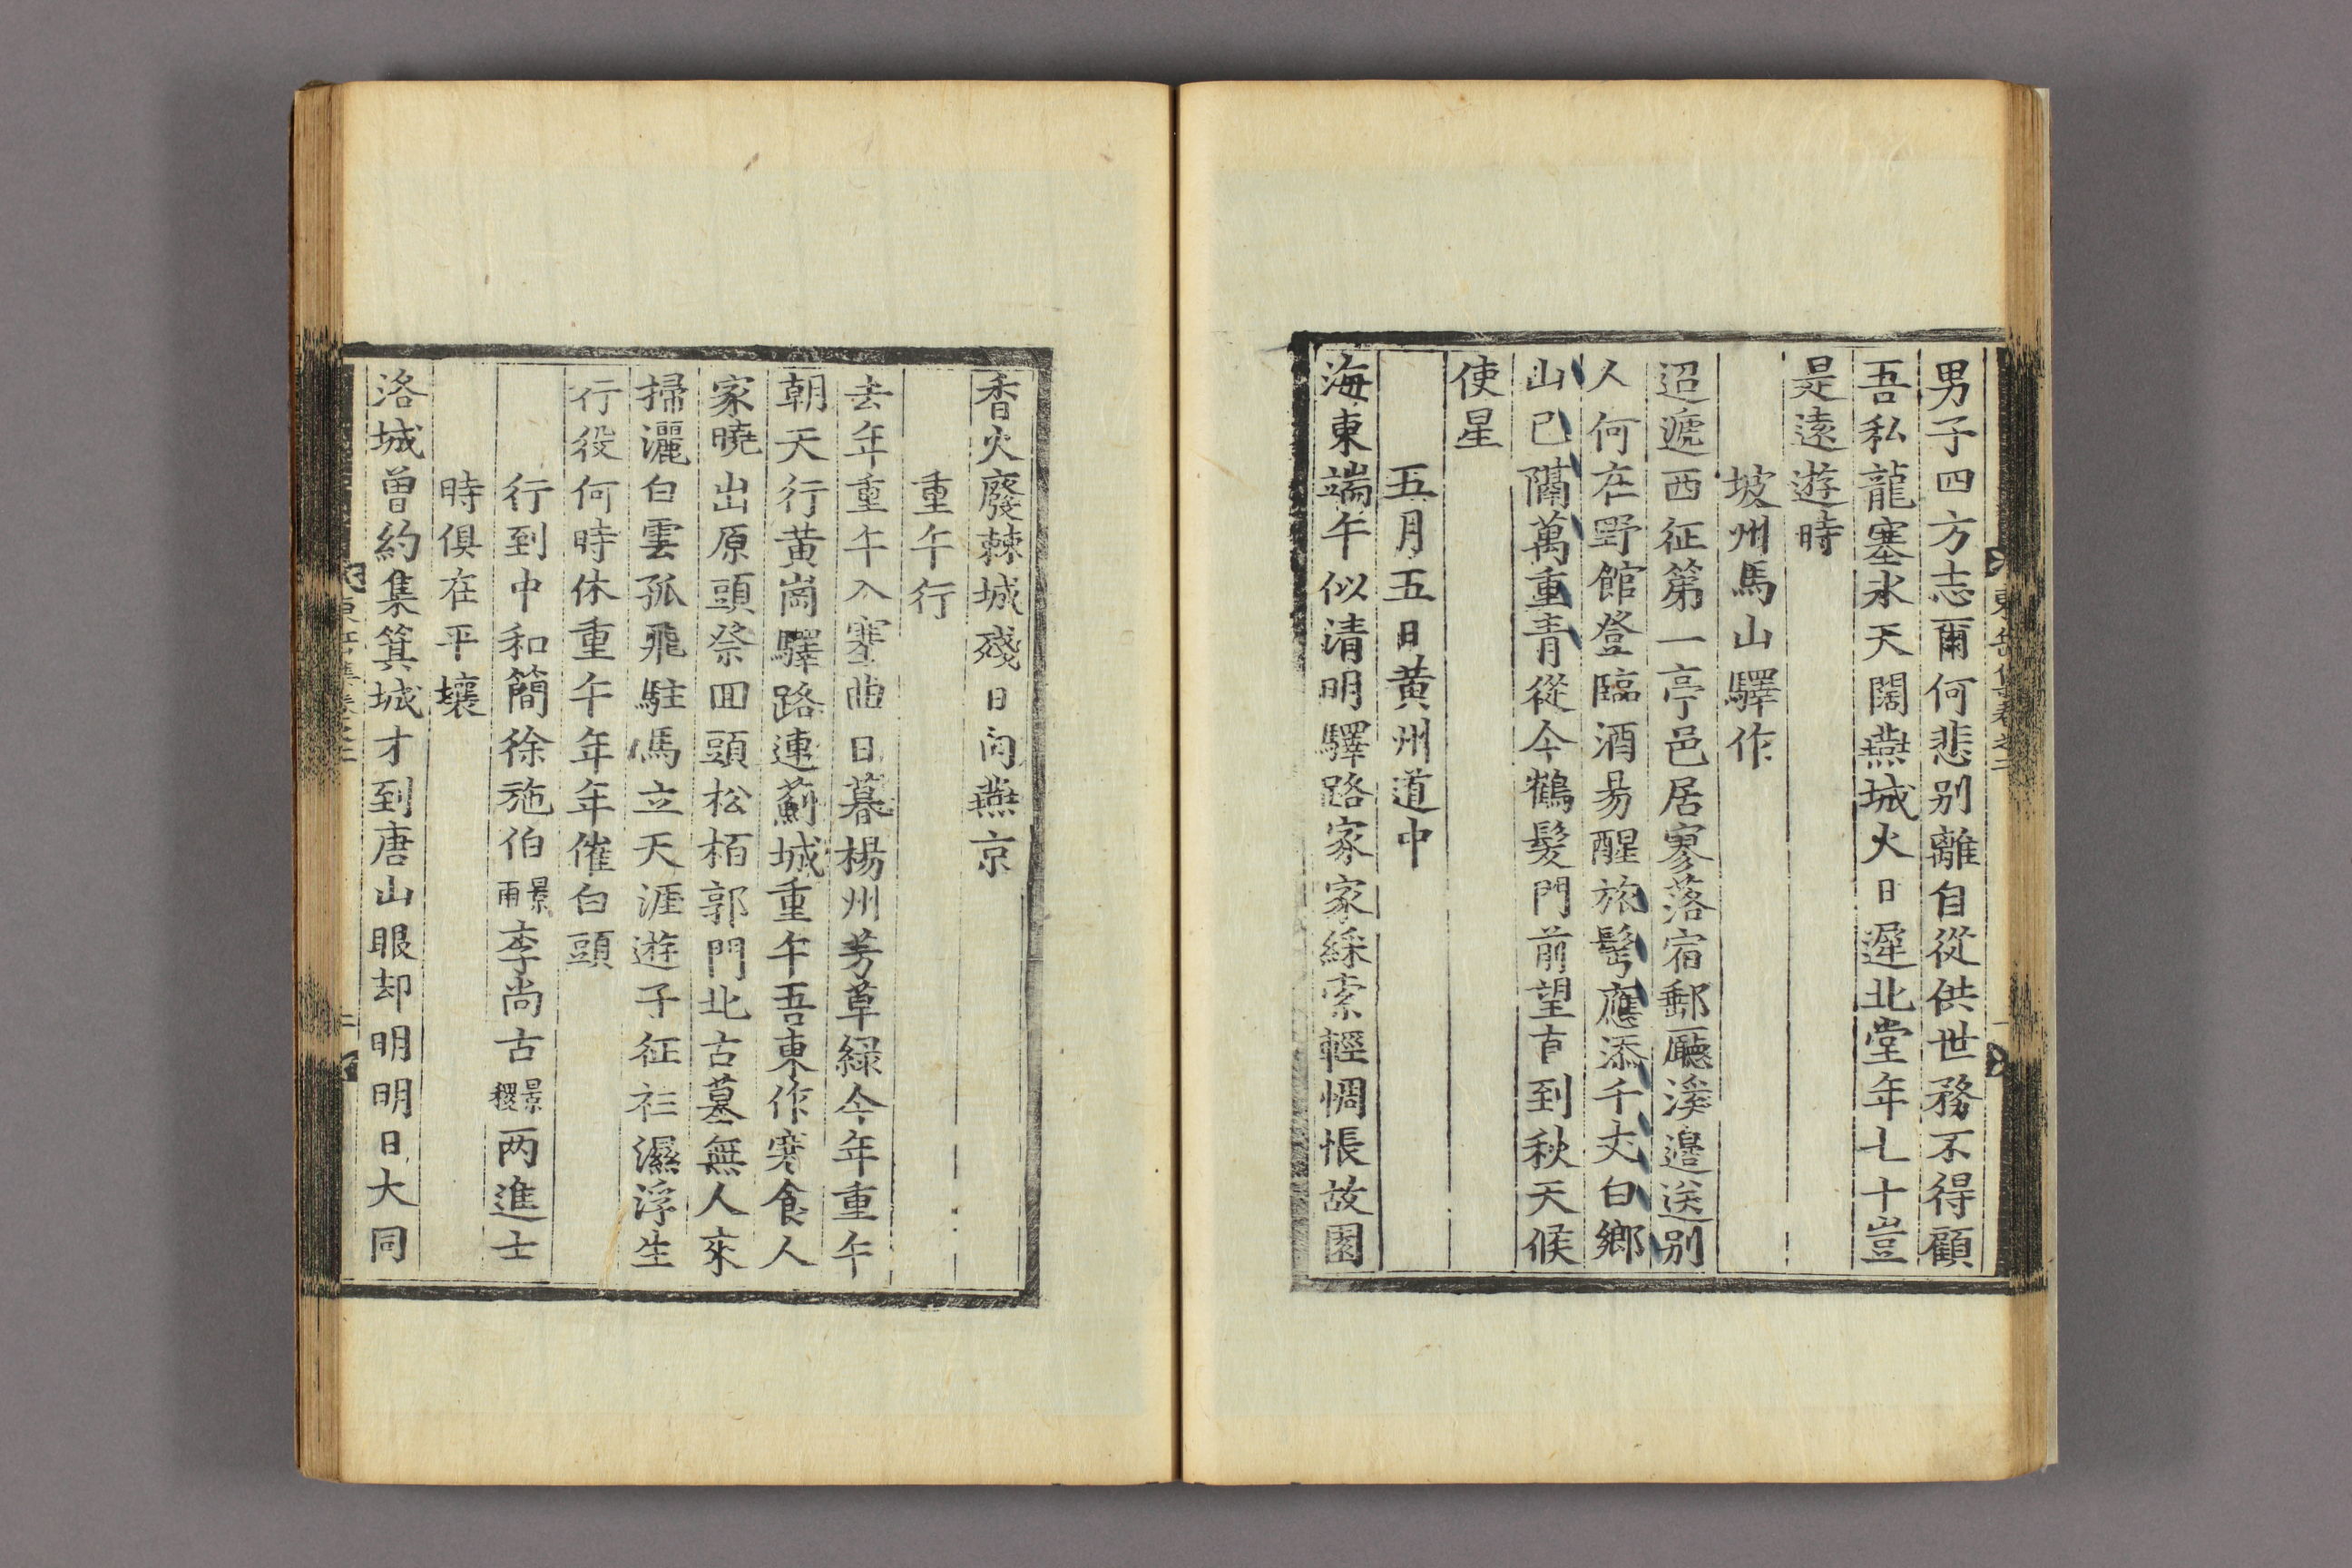 男子四方志爾何悲別離自從供世務不得顧
吾私龍塞氷天闊燕城火日遲北堂年七十豈
是遠遊時
坡州馬山驛作
迢遞西征第一亭邑居寥落宿郵廳溪邊送別
人何在野館登臨酒易醒旅髩應添千丈白鄉
山已隔萬重青從今鶴髮門前望直到秋天候
使星
五月五日黃州道中
海東端午似清明驛路家家綵索輕惆悵故園
香火廢棘城殘日向燕京
重午行
去年重午入塞曲日暮楊州芳草綠今年重午
朝天行黃崗驛路連薊城重午吾東作寒食人
家曉出原頭祭回頭松栢郭門北古墓無人來
掃灑白雲孤飛駐馬立天涯遊子征衫濕浮生
行役何時休重午年年催白頭
行到中和簡徐施伯景雨李尚古景稷两進士
時俱在平壤
洛城曾約集箕城才到唐山眼却明明日大同